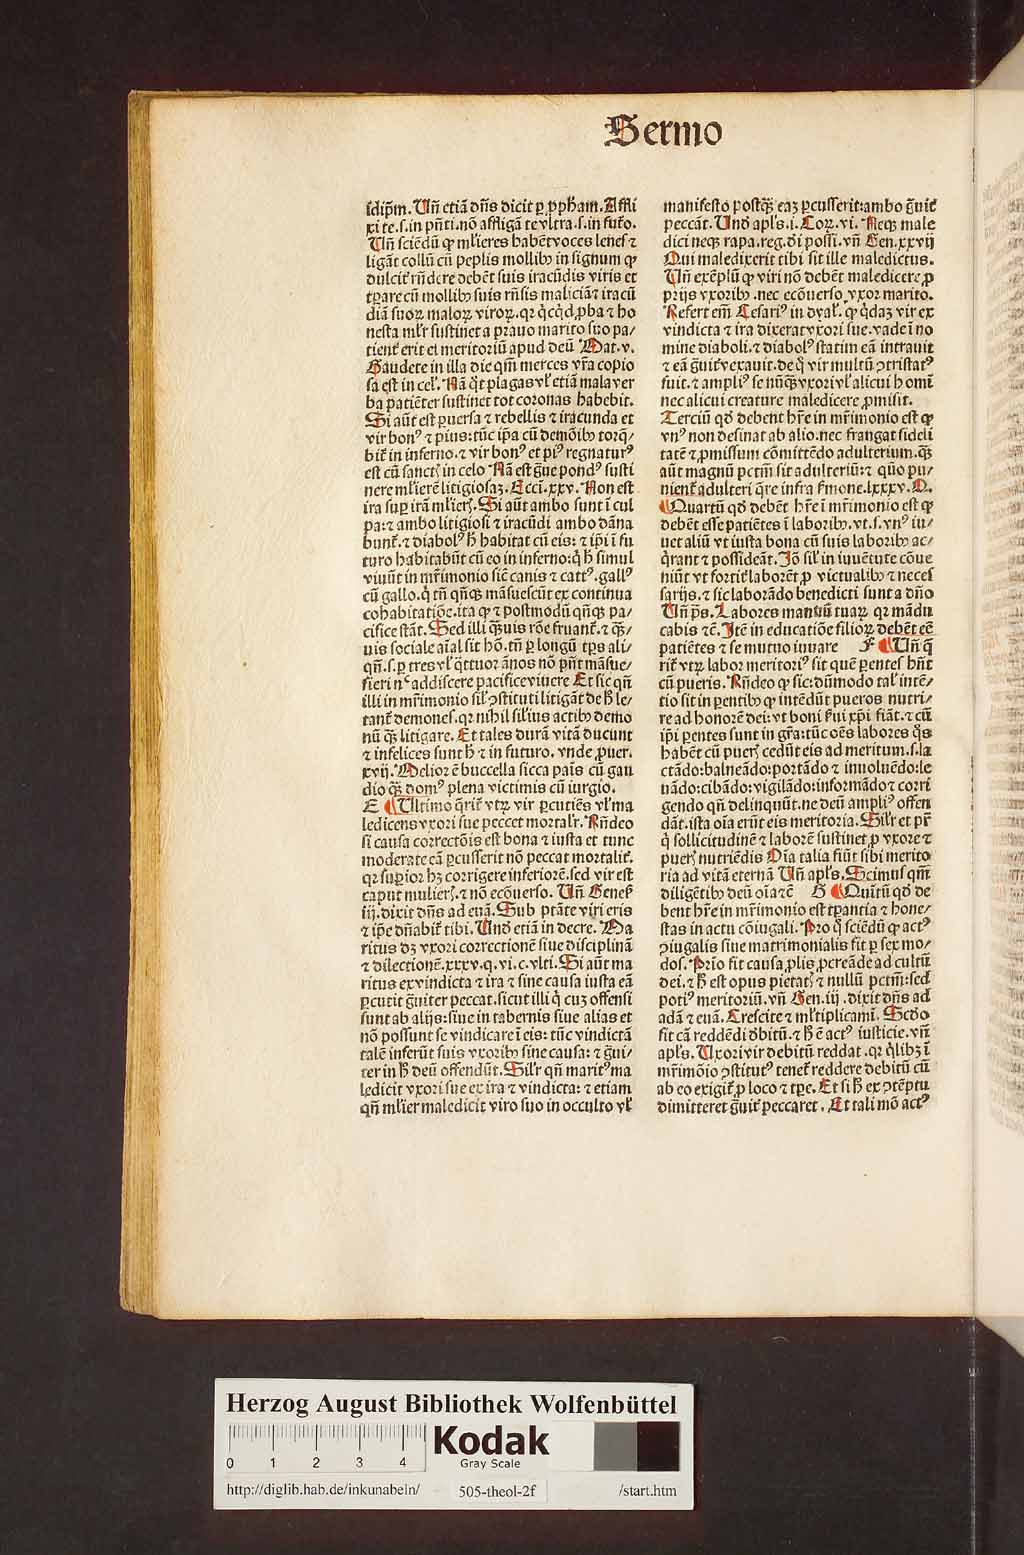 Sermo
īdip̄m. Uñ etiā dn̄s dicit ꝑ ꝓpham. Affli
xi te .s. in pn̄ti. nō affligā te vltra .s. in futo.
Uñ sciēdū ꝙ ml̄ieres habēt voces lenes ⁊
ligāt collū cū peplis mollibꝰ in signum ꝙ
dulcit͛ rn̄dere debēt suis iracūdis viris et
tꝑare cū mollibꝰ suis rn̄sis maliciā ⁊ iracū
diā suoꝝ maloꝝ viroꝝ. qꝛ q̇cq̇d ꝓba ⁊ ho
nesta ml̓r sustinet a prauo marito suo pa/
tient͛ erit ei meritoriū apud deū Mat. v.
Gaudete in illa die qm̄ merces vr̄a copio
sa est in cel͛. Nā q̇t plagas vl̓ etiā mala ver
ba patiēter sustinet tot coronas habebit.
Si aūt est ꝑuersa ⁊ rebellis ⁊ iracunda et
vir bonꝰ ⁊ pius: tūc ip̄a cū demōibꝰ torq̄/
bit͛ in inferno. ⁊ vir bonꝰ et piꝰ regnaturꝰ
est cū sanct͛ in celo Nā est g̈ue pondꝰ susti
nere ml̓ierē litigiosaꝫ. Ecci. xxv. Non est
ira suꝑ irā ml̓ier͛. Si aūt ambo sunt ī cul
pa: ⁊ ambo litigiosi ⁊ iracūdi ambo dāna
bunt͛. ⁊ diabolꝰ h̄ habitat cū eis: ⁊ ip̄i ī fu
turo habitabūt cū eo in inferno: q̇ h̄ simul
viuūt in mr̄imonio sic̄ canis ⁊ cattꝰ. gallꝰ
cū gallo. q̇ tn̄ qn̄qꝫ māsuescūt ex continua
cohabitatiōe. ita ꝙ ⁊ postmodū qn̄qꝫ pa/
cifice stāt. Sed illi qꝫuis rōe fruant͛. ⁊ qꝫ/
uis sociale aīal sit hō. tn̄ ꝑ longū tꝑs ali/
qn̄. s. ꝑ tres vl̓ q̇ttuor ānos nō pn̄t māsue/
fieri nᶜ addiscere pacifice viuere Et sic qn̄
illi in mr̄imonio sil̓ ꝯstituti litigāt de h̄ le/
tant͛ demones. qꝛ nihil sil̓ius actibꝰ demo
nū qꝫ litigare. Et tales durā vitā ducunt
⁊ infelices sunt h̄ ⁊ in futuro. vnde ꝓuer.
xvij. Melior ē buccella sicca panis cū gau
dio qꝫ domꝰ plena victimis cū iurgio.
E Ultimo q̇rit͛ vtꝝ vir ꝑcutiēs vl̓ ma
ledicens vxori sue peccet mortal̓r. Rn̄deo
si causa correctōis est bona ⁊ iusta et tunc
moderate eā ꝑcusserit nō peccat mortalit͛.
qꝛ suꝑior hꝫ corrigere inferiorē. sed vir est
caput mulier͛. ⁊ nō ecōuerso. Uñ Genes͛
iij. dixit dn̄s ad euā. Sub ptāte viri eris
⁊ ip̄e dn̄abit͛ tibi. Und̄ etiā in decre. Ma
ritus dꝫ vxori correctionē siue disciplinā
⁊ dilectionē. xxxv. q. vi. c. vlti. Si aūt ma
ritus ex vindicta ⁊ ira ⁊ sine causa iusta eā
ꝑcutit g̈uiter peccat. sicut illi q̇ cuꝫ offensi
sunt ab alijs: siue in tabernis siue alias et
nō possunt se vindicare ī eis: tūc vindictā
talē inferūt suis vxoribꝰ sine causa: ⁊ g̈ui/
ter in h̄ deū offendūt. Sil̓r qn̄ maritꝰ ma
ledicit vxori sue ex ira ⁊ vindicta: ⁊ etiam
qn̄ ml̓ier maledicit viro suo in occulto vl̓
manifesto postqꝫ eaꝫ ꝑcusserit: ambo g̈uit͛
peccāt. Und̄ apl̓s. i. Coꝝ. vi. Neqꝫ male
dici neqꝫ rapa. reg. di possi. vñ Gen. xxvij
Qui maledixerit tibi sit ille maledictus.
Uñ exēplū ꝙ viri nō debēt maledicere ꝓ
prijs vxoribꝰ. nec ecōuerso vxor marito.
Refert em̄ Cesariꝰ in dyal͛. ꝙ q̇daꝫ vir ex
vindicta ⁊ ira dixerat vxori sue. vade ī no
mine diaboli. ⁊ diabolꝰ statim eā intrauit
⁊ eā g̈uit͛ vexauit. de q̇ vir multū ꝯtristatꝰ
fuit. ⁊ ampliꝰ se nūqꝫ vxori vl̓ alicui homī
nec alicui creature maledicere ꝓmisit.
Terciū qd̄ debent hr̄e in mr̄imonio est ꝙ
vnꝰ non desinat ab alio. nec frangat fideli
tatē ⁊ ꝓmissum cōmittēdo adulterium. qꝫ
aūt magnū pctm̄ sit adulteriū: ⁊ quō pu/
nient͛ adulteri q̄re infra s̄mone. lxxxv. O.
Quartū qd̄ debēt hr̄e ī mr̄imonio est ꝙ
debēt esse patiētes ī laboribꝰ. vt. s. vnꝰ iu/
uet aliū vt iusta bona cū suis laboribꝰ ac/
q̇rant ⁊ possideāt. Jō sil̓ in iuuētute cōue
niūt vt fortit͛ laborēt ꝓ victualibꝰ ⁊ neces
sarijs. ⁊ sic laborādo benedicti sunt a dn̄o
Uñ ps̄. Labores manuū tuaꝝ qꝛ mādu
cabis ⁊c̄. Jtē in educatiōe filioꝝ debēt eē
patiētes ⁊ se mutuo iuuare F Uñ q̄
rit͛ vtꝝ labor meritoriꝰ sit quē ꝑentes hn̄t
cū pueris. Rn̄deo ꝙ sic: dūmodo tal͛ intē/
tio sit in ꝑentibꝰ ꝙ intēdūt pueros nutri/
re ad honorē dei: vt boni s̄ui xp̄i fiāt. ⁊ cū
ip̄i ꝑentes sunt in gr̄a: tūc oēs labores q̇s
habēt cū puer͛ cedūt eis ad meritum. s. la
ctādo: balneādo: portādo ⁊ inuoluēdo: le
uādo: cibādo: vigilādo: informādo ⁊ corri
gendo qn̄ delinquūt. ne deū ampliꝰ offen
dāt. ista oīa erūt eis meritoria. Sil̓r et pr̄
q̇ sollicitudinē ⁊ laborē sustinet ꝓ vxore ⁊
puer͛ nutriēdis Oīa talia fiūt sibi merito
ria ad vitā eternā Uñ apl̓s. Scimus qm̄
diligētibꝰ deū oīa ⁊c̄ G Quītū qd̄ de
bent hr̄e in mr̄imonio est tꝑantia ⁊ hone/
stas in actu cōiugali. Pro q̇ sciēdū ꝙ actꝰ
ꝯiugalis siue matrimonialis fit ꝑ sex mo/
dos. Prīo fit causa ꝓlis ꝓcreāde ad cultū
dei. ⁊ h̄ est opus pietat͛ ⁊ nullū pctm̄: sed
potiꝰ meritoriū. vñ Gen. iij. dixit dn̄s ad
adā ⁊ euā. Crescite ⁊ ml̓tiplicami. Scd̄o
fit cā reddēdi d̄bitū. ⁊ h̄ ē actꝰ iusticie. vñ
apl̓s. Uxori vir debitū reddat. qꝛ q̇libꝫ ī
mr̄imōio ꝯstitutꝰ tenet͛ reddere debitū cū
ab eo exigit͛ ꝓ loco ⁊ tꝑe. Et si h̄ ex ꝯtēptu
dimitteret g̈uit͛ peccaret. Et tali mō actꝰ
Herzog August Bibliothek Wolfenbüttel
0 1 2 3 4
Kodak
Gray Scale
http://diglib.hab.de/inkunabeln/ 505-theol-2f /start.htm